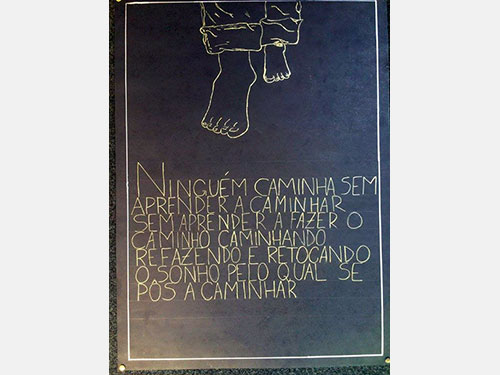 NINGUÉM CAMINHA SEM
APRENDER A CAMINHAR
SEM APRENDER A FAZER O
CAMINHO CAMINHANDO
REFAZENDO E RETOCANDO
O SONHO PELO QUAL SE
PÔS A CAMINHAR